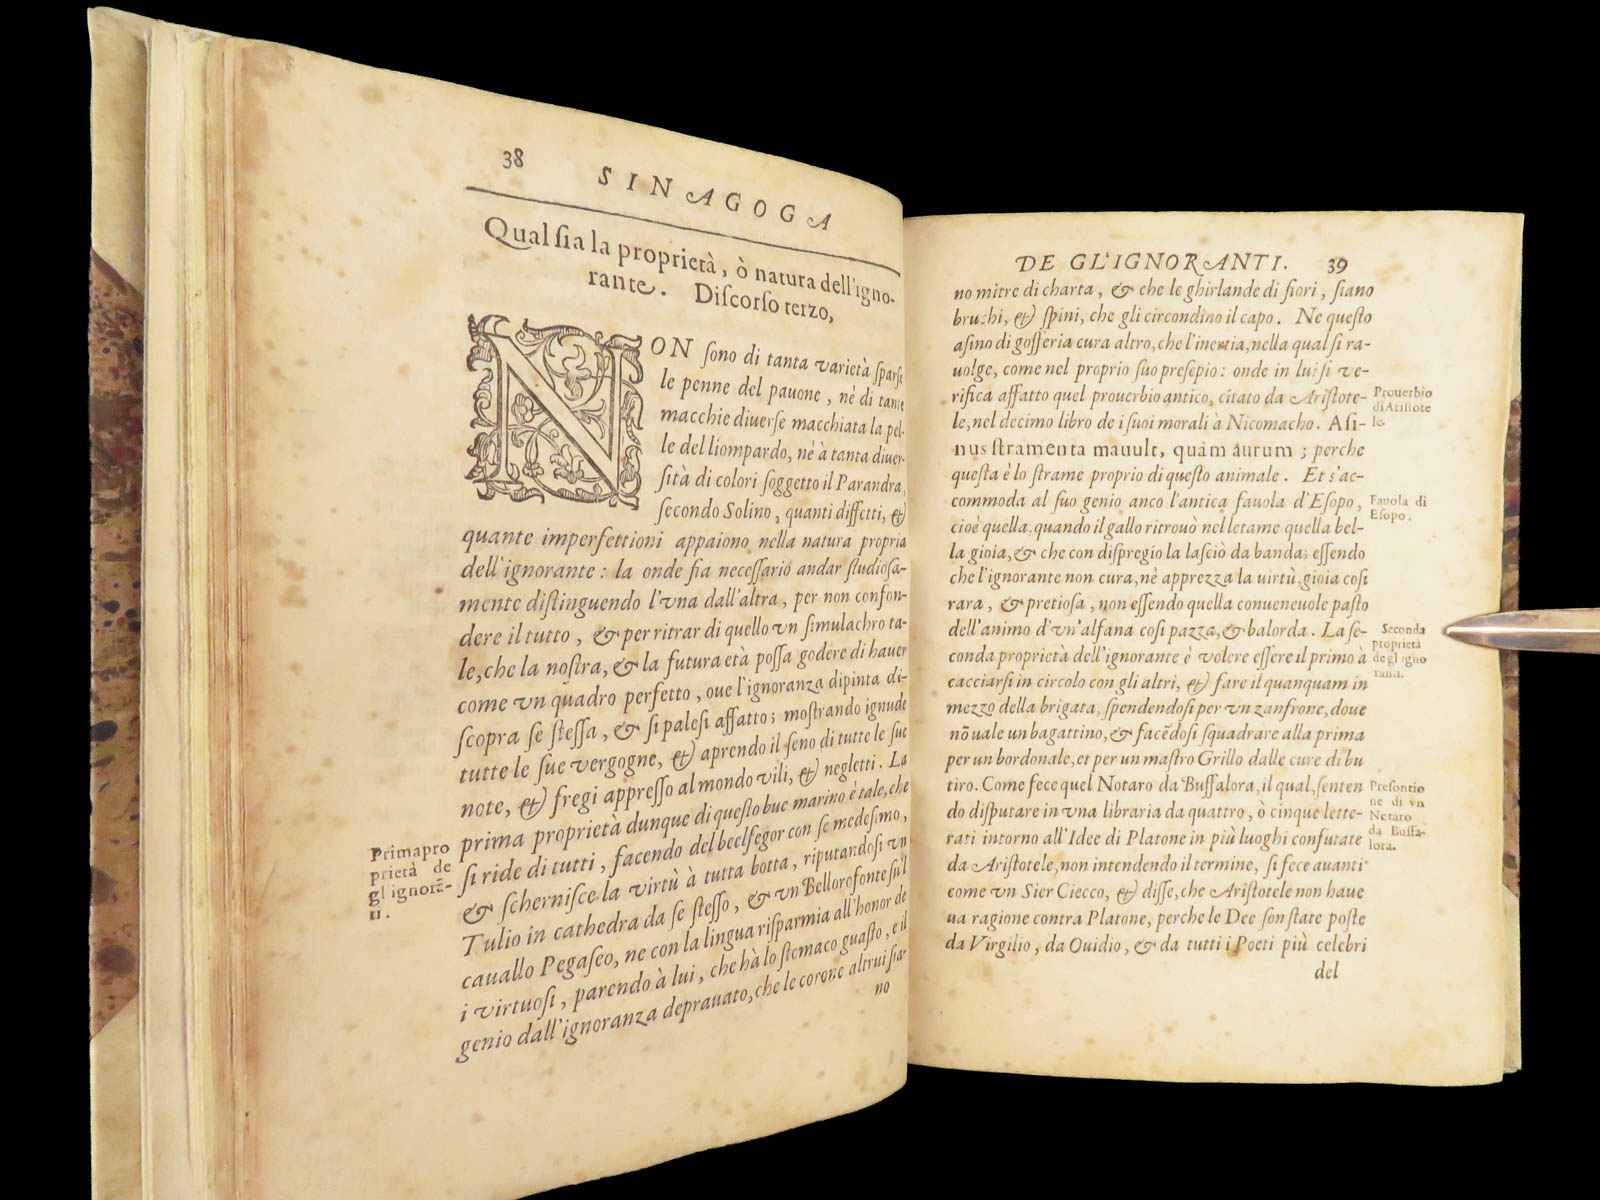 38
SINAGOGA
Qual ſia la proprietà, ò natura dell'igno-
rante. Diſcorſo terzo,
NON ſono di tanta varietà ſparſe
le penne del pauone, nè di tante
macchie diuerſe macchiata la pel-
le del liompardo, nè à tanta diuer-
ſità di colori ſoggetto il Parandra,
ſecondo Solino, quanti diffetti, &
quante imperfettioni appaiono nella natura propria
dell'ignorante: la onde fia neceſſario andar ſtudioſa-
mente diſtinguendo l'vna dall'altra, per non confon-
dere il tutto, & per ritrar di quello vn ſimulachro ta-
le, che la noſtra, & la futura età poſſa godere di hauer
come vn quadro perfetto, oue l'ignoranza dipinta di-
ſcopra ſe ſteſſa, & ſi paleſi affatto; moſtrando ignude
tutte le ſue vergogne, & aprendo il ſeno di tutte le ſue
note, & fregi appreſſo al mondo vili, & negletti. La
prima proprietà dunque di queſto bue marino è tale, che
ſi ride di tutti, facendo del beelfegor con ſe medeſimo,
& ſcherniſce la virtù à tutta botta, riputandoſi vn
Tulio in cathedra da ſe ſteſſo, & vn Bellorofonte ſu'l
cauallo Pegaſeo, ne con la lingua riſparmia all'honor de
i virtuoſi, parendo à lui, che hà lo ſtomaco guaſto, e il
genio dall'ignoranza deprauato, che le corone altrui ſia-
no
Prima pro
prietà de
gl ignorã-
ti.
DE GL'IGNORANTI. 39
no mitre di charta, & che le ghirlande di fiori, ſiano
bruchi, & ſpini, che gli circondino il capo. Ne queſto
aſino di goſſeria cura altro, che l'inertia, nella qual ſi ra-
uolge, come nel proprio ſuo preſepio: onde in lui ſi ve-
rifica affatto quel prouerbio antico, citato da Ariſtote-
le, nel decimo libro de i ſuoi morali à Nicomacho. Aſi-
nus ſtramenta mauult, quàm aurum; perche
queſta è lo ſtrame proprio di queſto animale. Et s'ac-
commoda al ſuo genio anco l'antica fauola d'Eſopo,
cioè quella, quando il gallo ritrouò nel letame quella bel-
la gioia, & che con diſpregio la laſciò da banda; eſſendo
che l'ignorante non cura, nè apprezza la virtù, gioia coſi
rara, & pretioſa, non eſſendo quella conueneuole paſto
dell'animo d'vn'alfana coſi pazza, & balorda. La ſe-
conda proprietà dell'ignorante è volere eſſere il primo à
cacciarſi in circolo con gli altri, & fare il quanquam in
mezzo della brigata, ſpendendoſi per vn zanfrone, doue
nõ uale un bagattino, & facẽdoſi ſquadrare alla prima
per un bordonale, et per un maſtro Grillo dalle cure di bu
tiro. Come fece quel Notaro da Buffalora, il qual, ſenten
do diſputare in vna libraria da quattro, ò cinque lette-
rati intorno all'Idee di Platone in più luoghi confutate
da Ariſtotele, non intendendo il termine, ſi fece auanti
come vn Sier Ciecco, & diſſe, che Ariſtotele non haue
ua ragione contra Platone, perche le Dee ſon ſtate poſte
da Virgilio, da Ouidio, & da tutti i Poeti più celebri
del
Prouerbio
di Ariſtote
le.
Fauola di
Eſopo.
Seconda
proprietà
de gl igno
ranti.
Preſontio
ne di vn
Notaro
da Buffa-
lora.